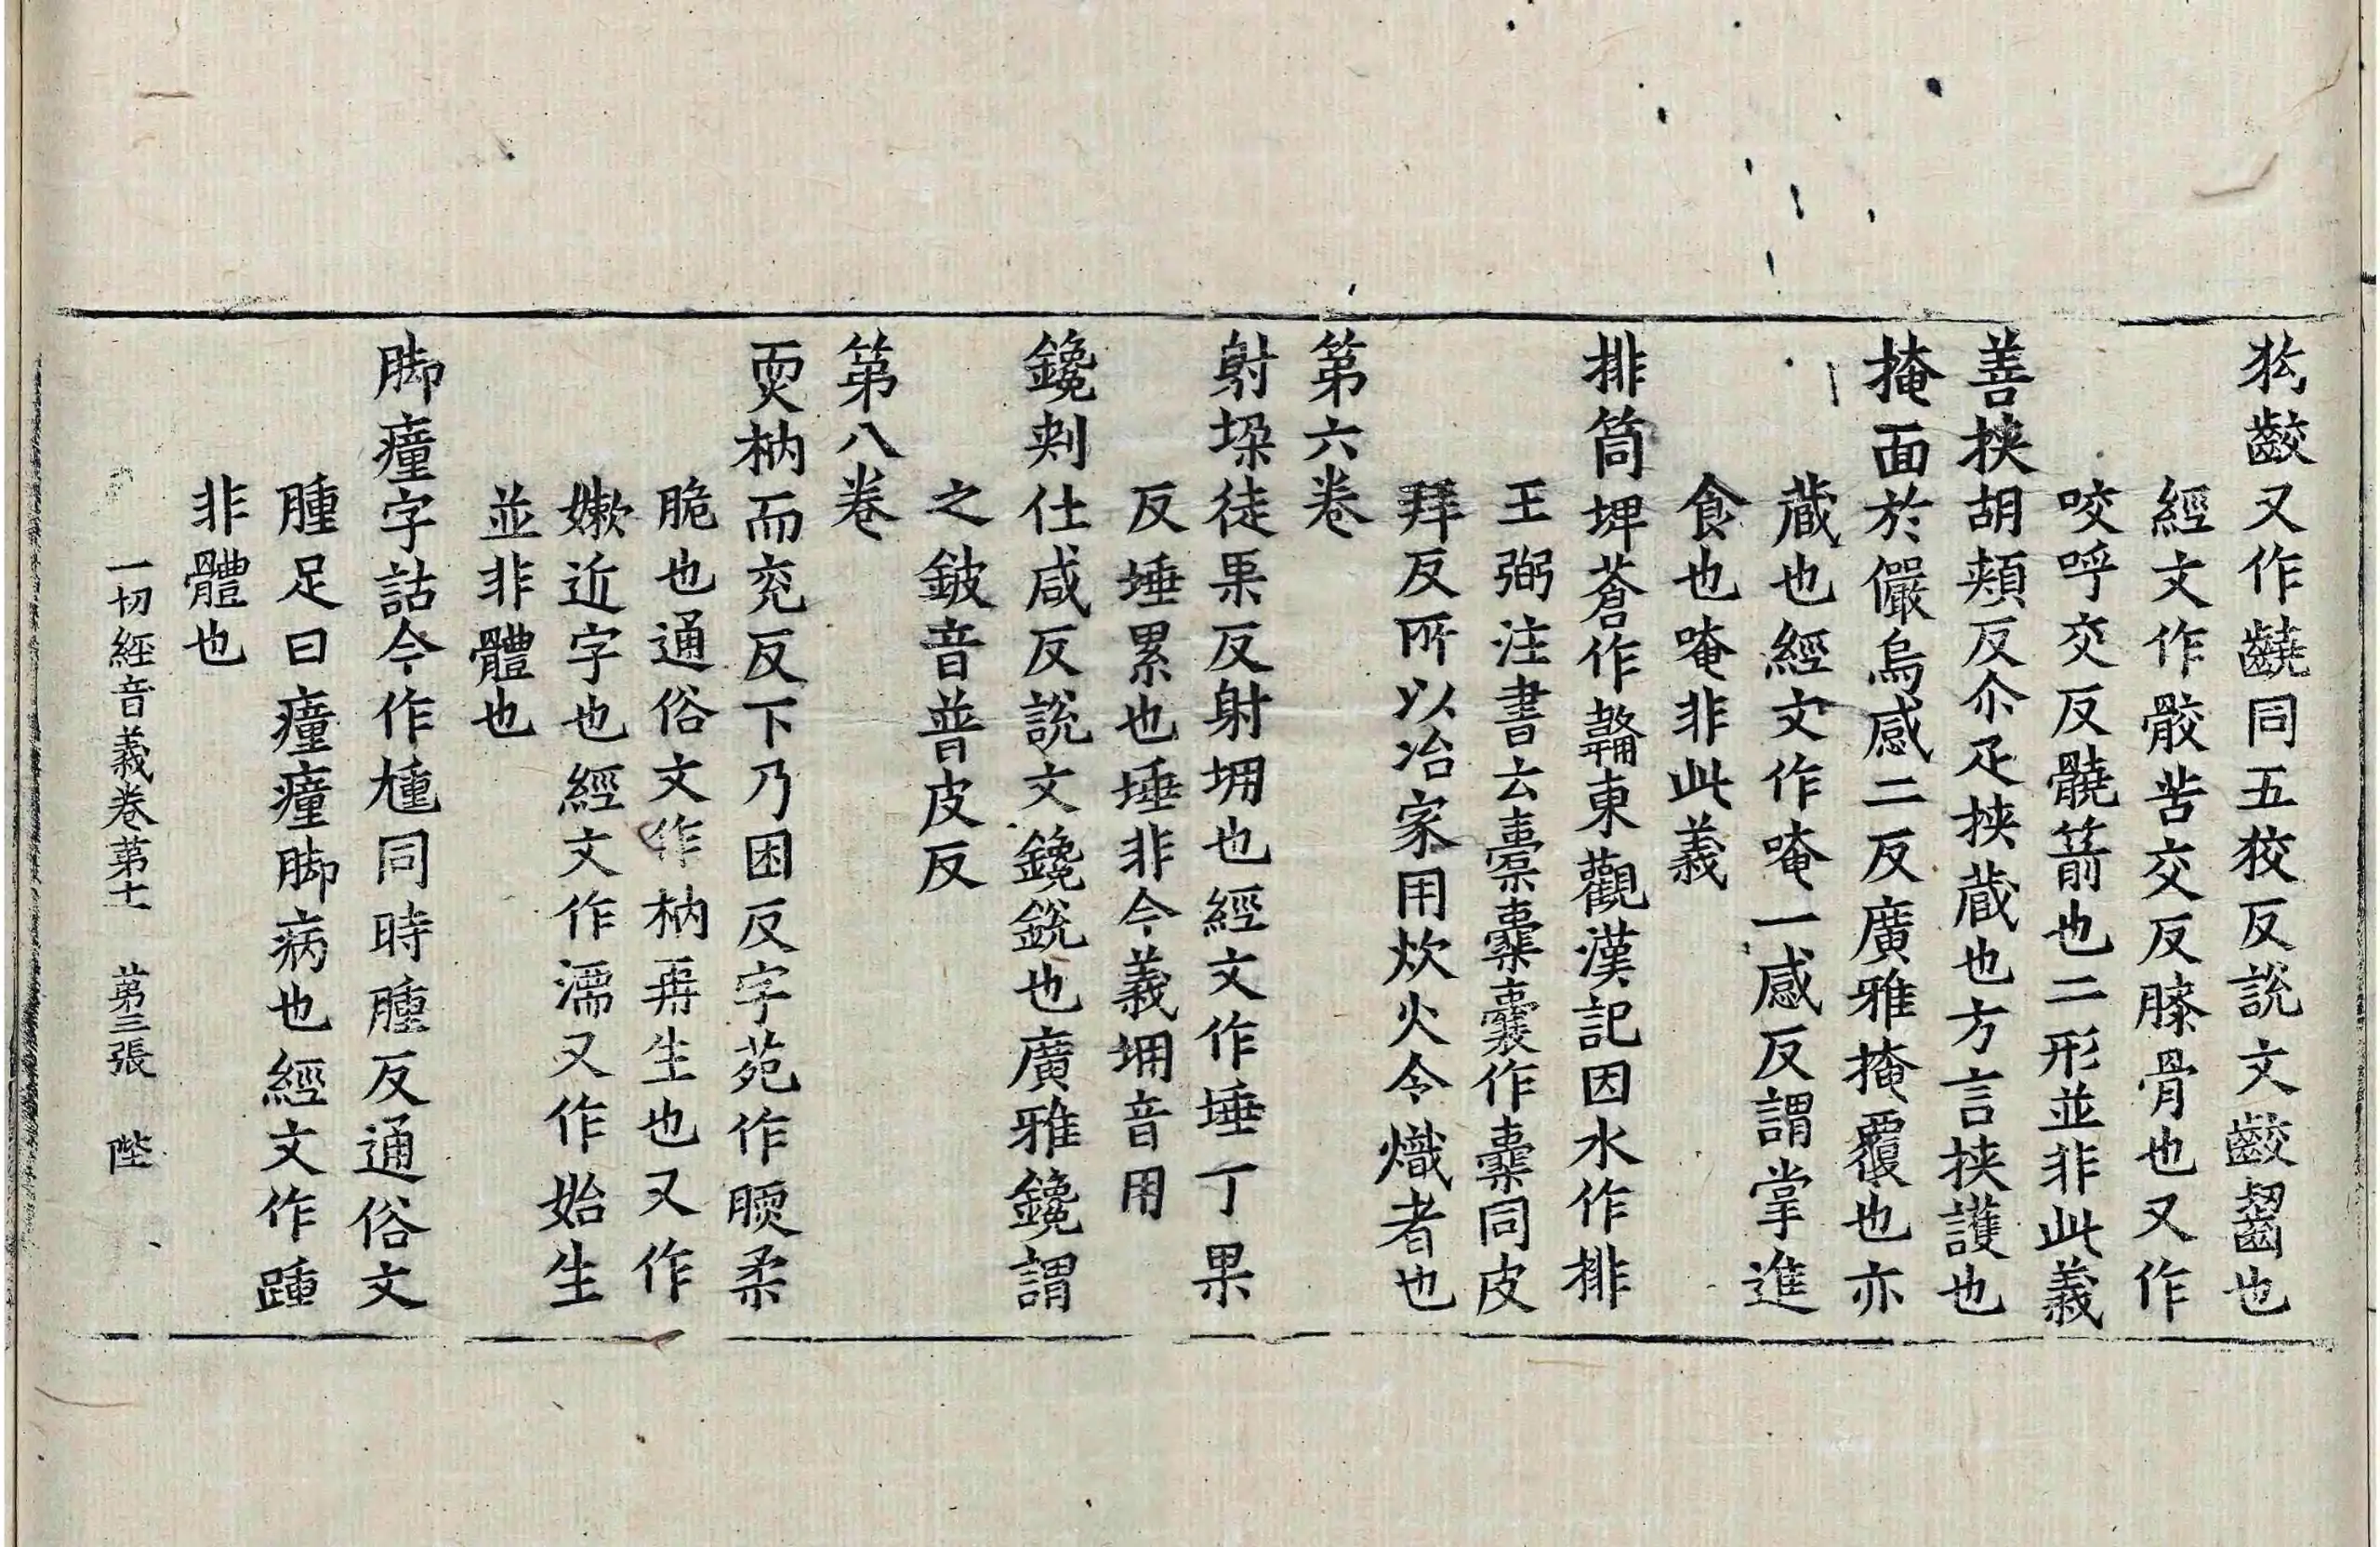 狖齩又作齾同五狡反說文齩齧也
經文作骹苦交反膝骨也又作
咬呼交反髐箭也二形並非此義
善挾胡頰反尒疋挾蔵也方言挾護也
掩面於儼烏感二反廣雅掩覆也亦
蔵也經文作唵一感反謂掌進
食也唵非此義
排筒埤蒼作韛東觀漢記因水作排
王弼注書云橐橐囊作橐同皮
拜反所以冶家用炊火令熾者也
第六卷
射垜徒果反射堋也經文作埵丁果
反埵累也埵非今義堋音用
鑱刾仕咸反說文鑱銳也廣雅鑱謂
之鈹音普皮反
第八卷
耎枘而兖反下乃困反字苑作腝柔
脆也通俗文作枘再生也又作
嫰近字也經文作濡又作始生
並非體也
脚瘇字詁今作尰同時腫反通俗文
腫足曰瘇瘇脚病也經文作踵
非體也
一切經音義卷第十一 第三張 陛